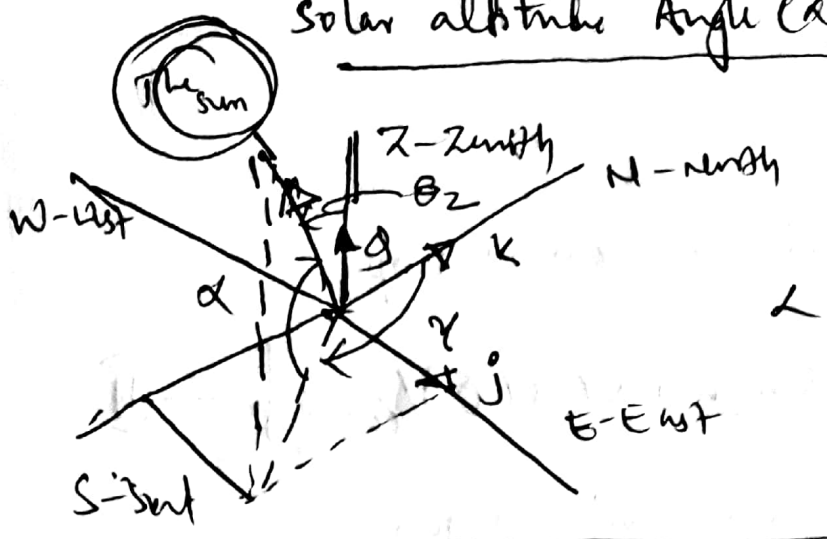 Solar altitude Angle (α
The sun
Z-Zenith
N-North
θz
W-West
g
K
α
γ
j
E-East
S-